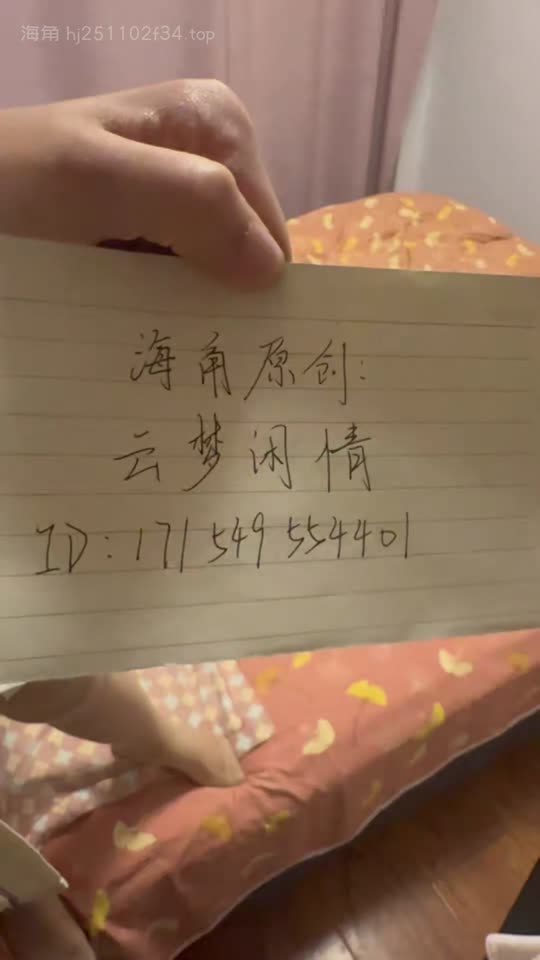 海角 hj251102f34.top
海角原创:
云梦闲情
ID:171549554401